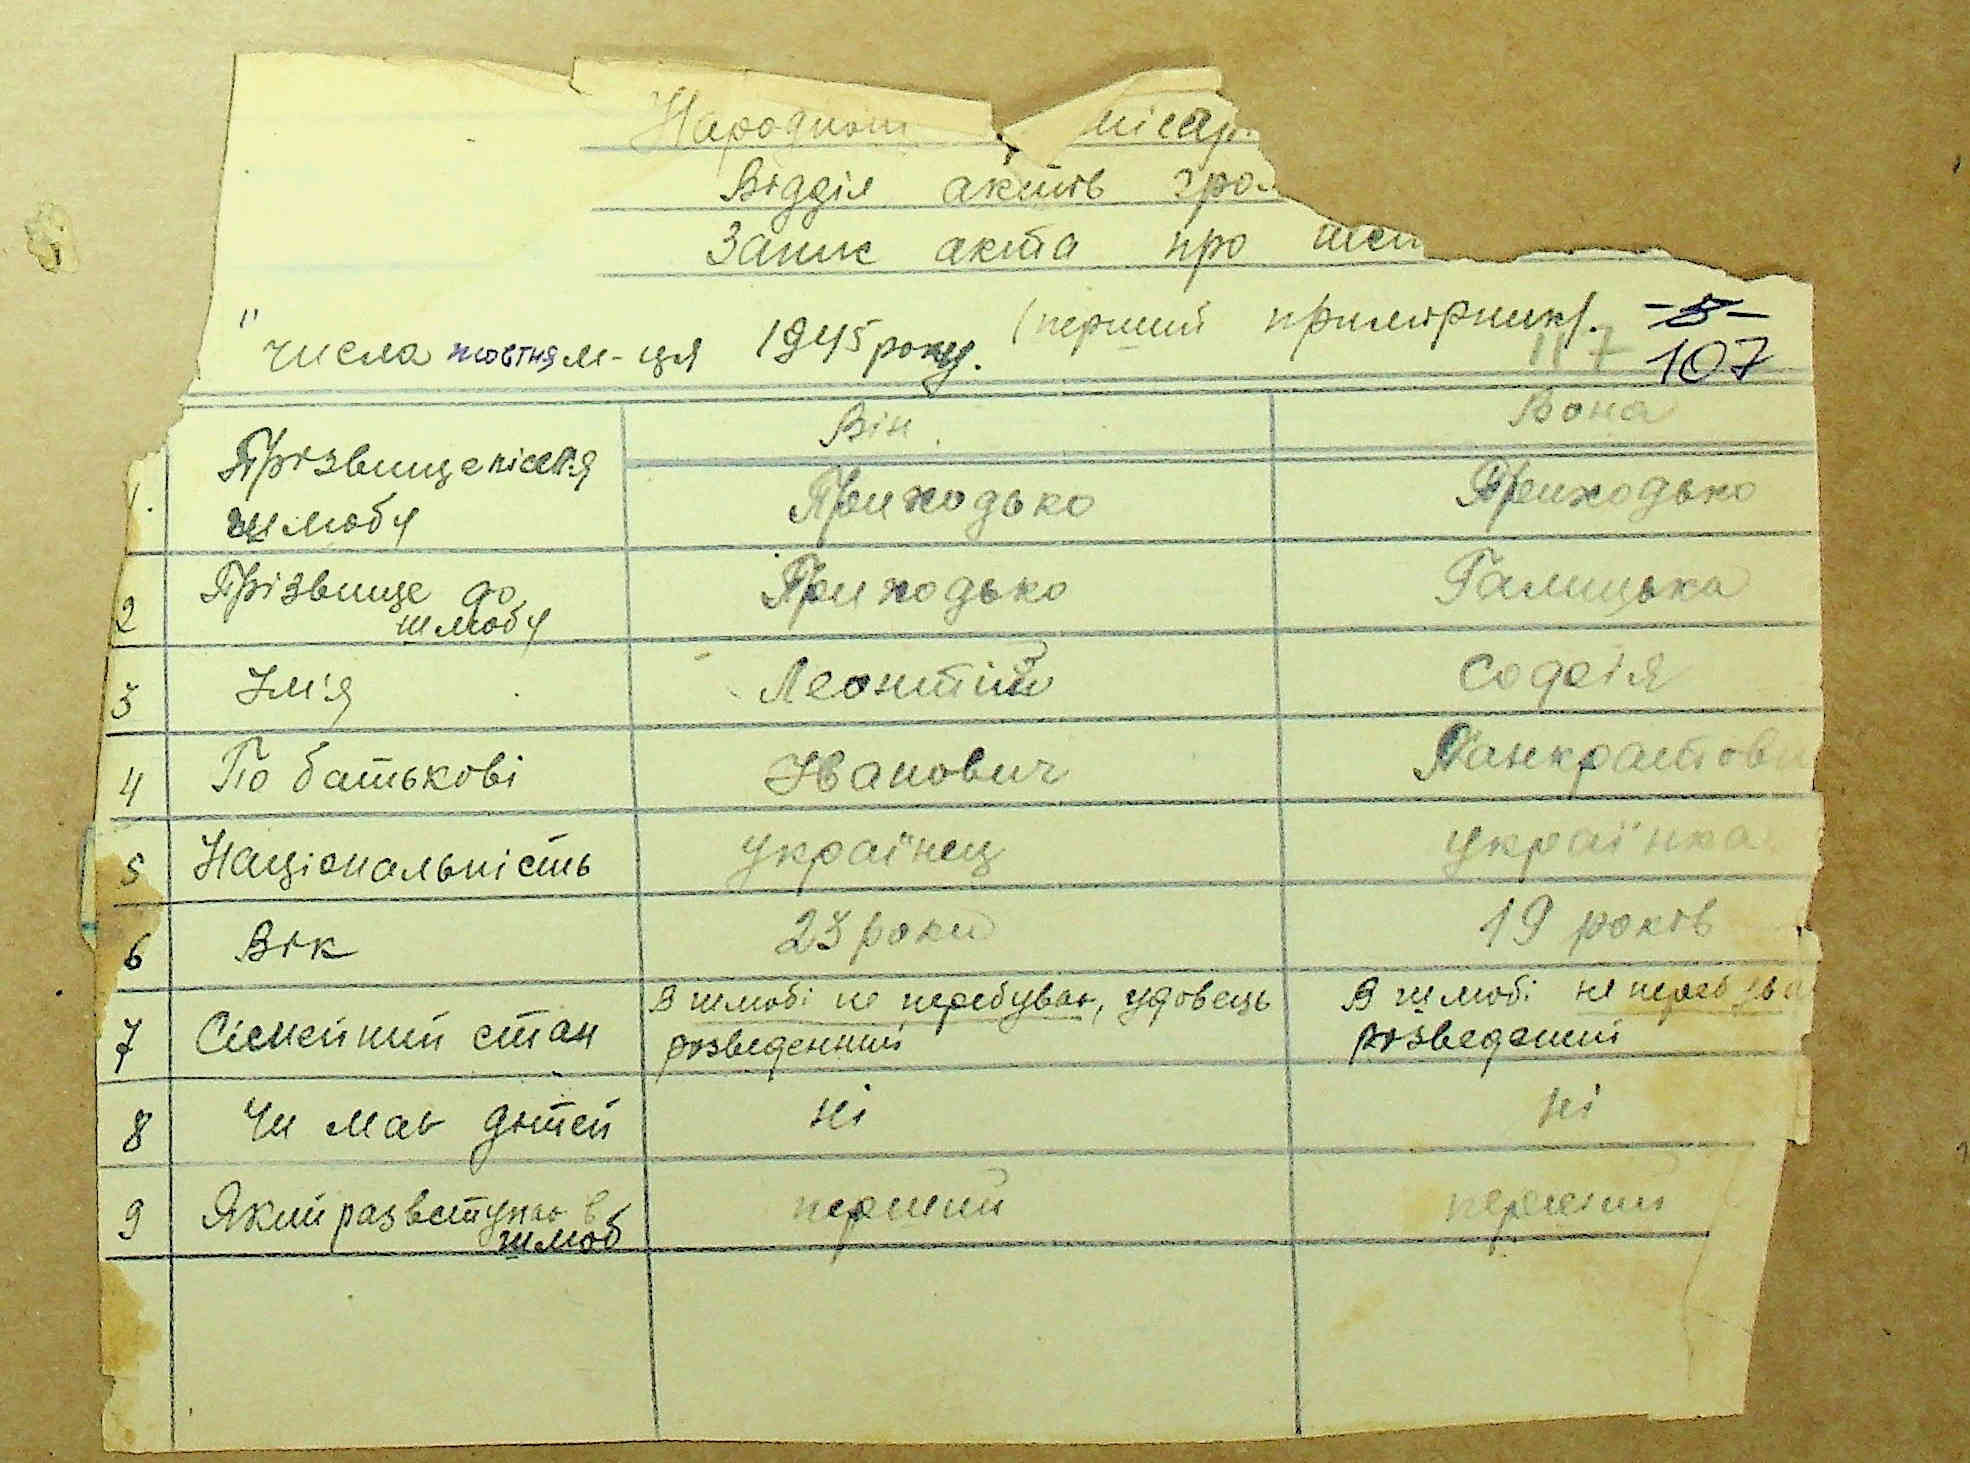 Відділ актів гро
Запис акта про шл
(перший примірник).
-5-
" числа жовтня м-ця 1945 року.
117
107
Він. Вона
1. Прізвище після Приходько Приходько
шлюбу
2 Прізвище до Приходько Галицька
шлюбу
3 Ім'я Леонтій Софія
4 По батькові Іванович Панкратов
5 Національність українец українка
6 Вік 23 роки 19 років
7 Сімейний стан В шлюбі не перебуває, удовець В шлюбі не перебува
розведенний розведений
8 Чи має дітей ні ні
9 Який раз вступає в перший перший
шлюб